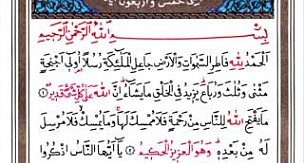 بِسْــــمِ اللهِ الرَّحْمٰنِ الرَّحِيمِ
اَلْحَمْدُ لِلهِ فَاطِرِ السَّمٰوَاتِ وَالْاَرْضِ جَاعِلِ الْمَلٰٓئِكَةِ رُسُلًا اُو۬ل۪ٓي اَجْنِحَةٍ
مَثْنٰى وَثُلٰثَ وَرُبَاعَ يَز۪يدُ فِي الْخَلْقِ مَا يَشَٓاءُ اِنَّ اللهَ عَلٰى كُلِّ شَيْءٍ قَد۪يرٌ ١
مَا يَفْتَحِ اللهُ لِلنَّاسِ مِنْ رَحْمَةٍ فَلَا مُمْسِكَ لَهَا وَمَا يُمْسِكْ فَلَا مُرْسِلَ
لَهُ مِنْ بَعْدِه۪ وَهُوَ الْعَز۪يزُ الْحَك۪يمُ ٢ يَٓا اَيُّهَا النَّاسُ اذْكُرُوا